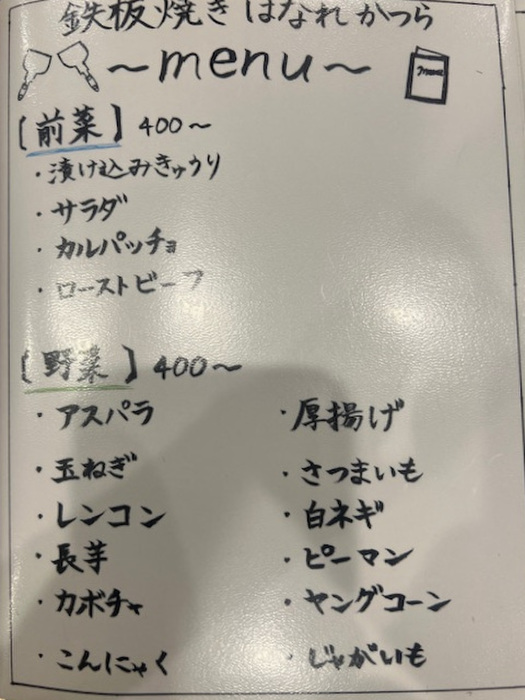 鉄板焼き はなれ かつら
～menu～
menu
【前菜】 400～
・漬け込みきゅうり
・サラダ
・カルパッチョ
・ローストビーフ
【野菜】 400～
・アスパラ ・厚揚げ
・玉ねぎ ・さつまいも
・レンコン ・白ネギ
・長芋 ・ピーマン
・カボチャ ・ヤングコーン
・こんにゃく ・じゃがいも